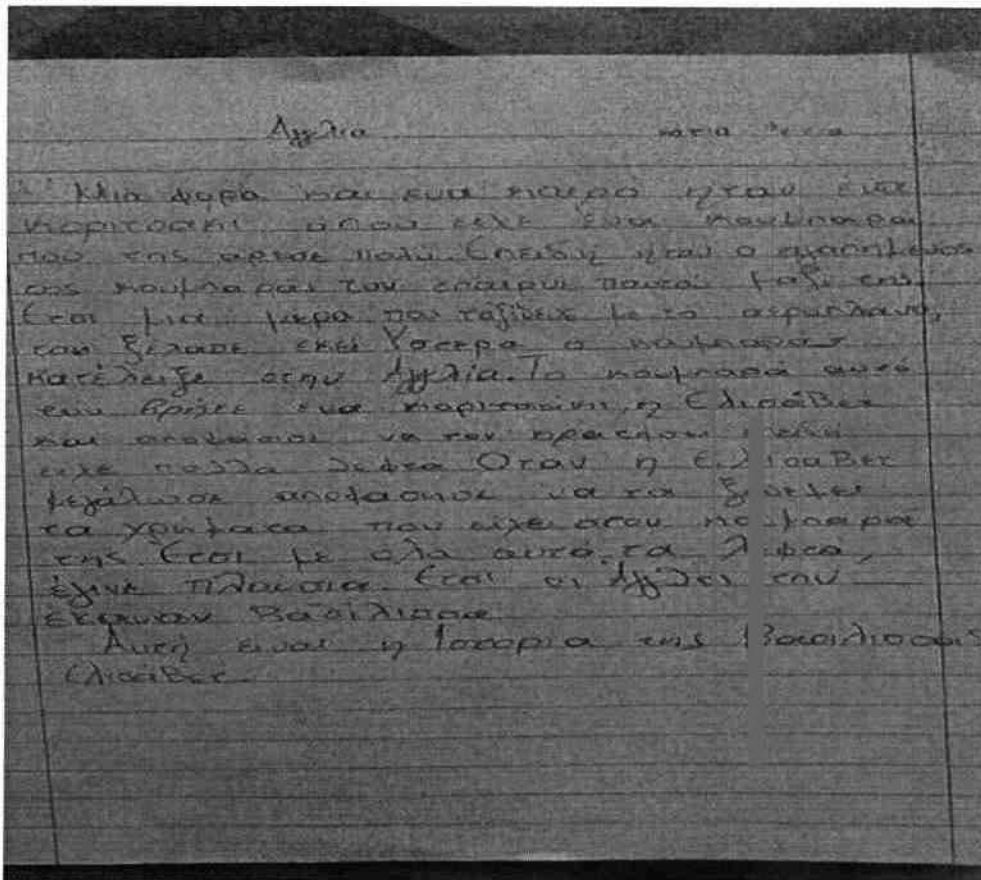 Αγγλια
Μια φορά και ενα καιρό ηταν ένα
κοριτσακι οπου ειχε ένα κουμπαρα
που της αρεσε πολύ Επειδή ηταν ο αγαπημενος
της κουμπαράς τον επαιρνε παντα μαζί της
Ετσι μια μερα που ταξίδευε με το αεροπλανο,
τον ξέχασε εκεί Υστερα ο κουμπαράς
κατέληξε στην Αγγλία. Το κουμπαρά αυτό
τον βρήκε ενα κοριτσάκι, η Ελισάβετ
και αποφάσισε να τον κρατήσει
ειχε πολλα λεφτα Οταν η Ελισαβετ
μεγάλωσε αποφασησε να τα ξοδεψει
τα χρηματα που ειχε στον κουμπαρά
της Ετσι με ολα αυτά τα λεφτά,
έγινε πλουσια Ετσι οι Αγγλοι την
εκαναν Βασίλισσα
Αυτή ειναι η Ιστορια της Βασιλισσας
Ελισάβετ